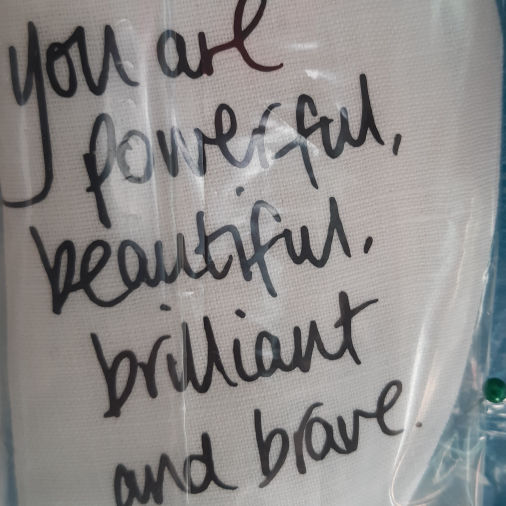 you are
powerful,
beautiful,
brilliant
and brave.